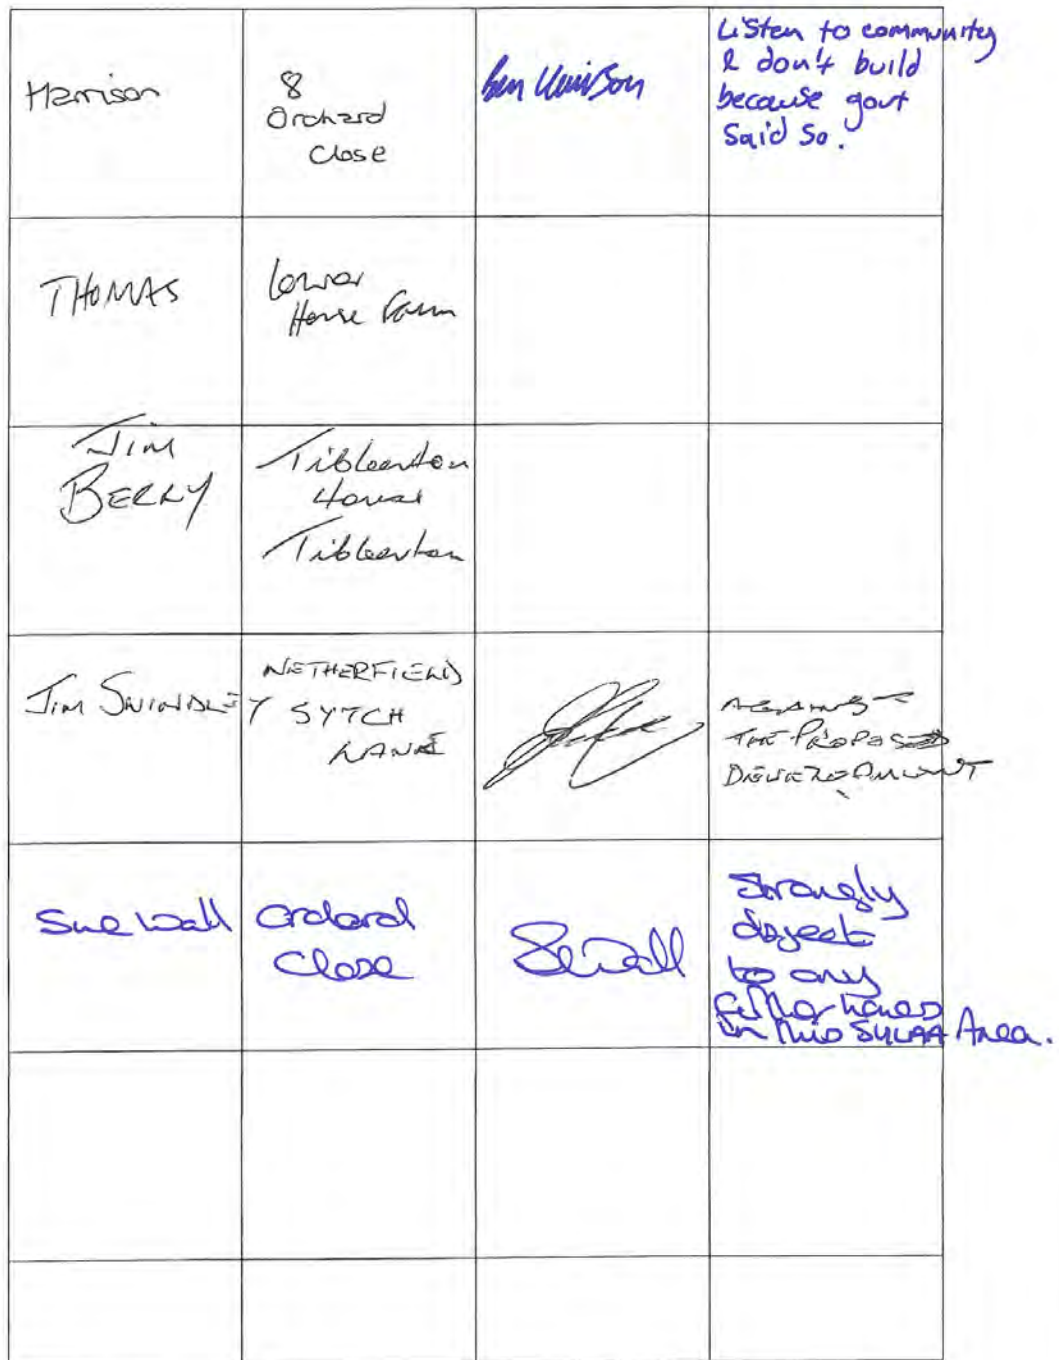 Harrison
8
Orchard
Close
Ben Harrison
Listen to community
& don't build
because govt
said so.
THOMAS
Lower
House Farm
Jim
BERRY
Tibberton
House
Tibberton
JIM SWINDLEY
NETHERFIELD
SYTCH
LANE
AGAINST
THE PROPOSED
DEVELOPMENT
Sue Wall
Orchard
Close
S Wall
Strongly
object
to any
further homes
in this SHLAA Area.